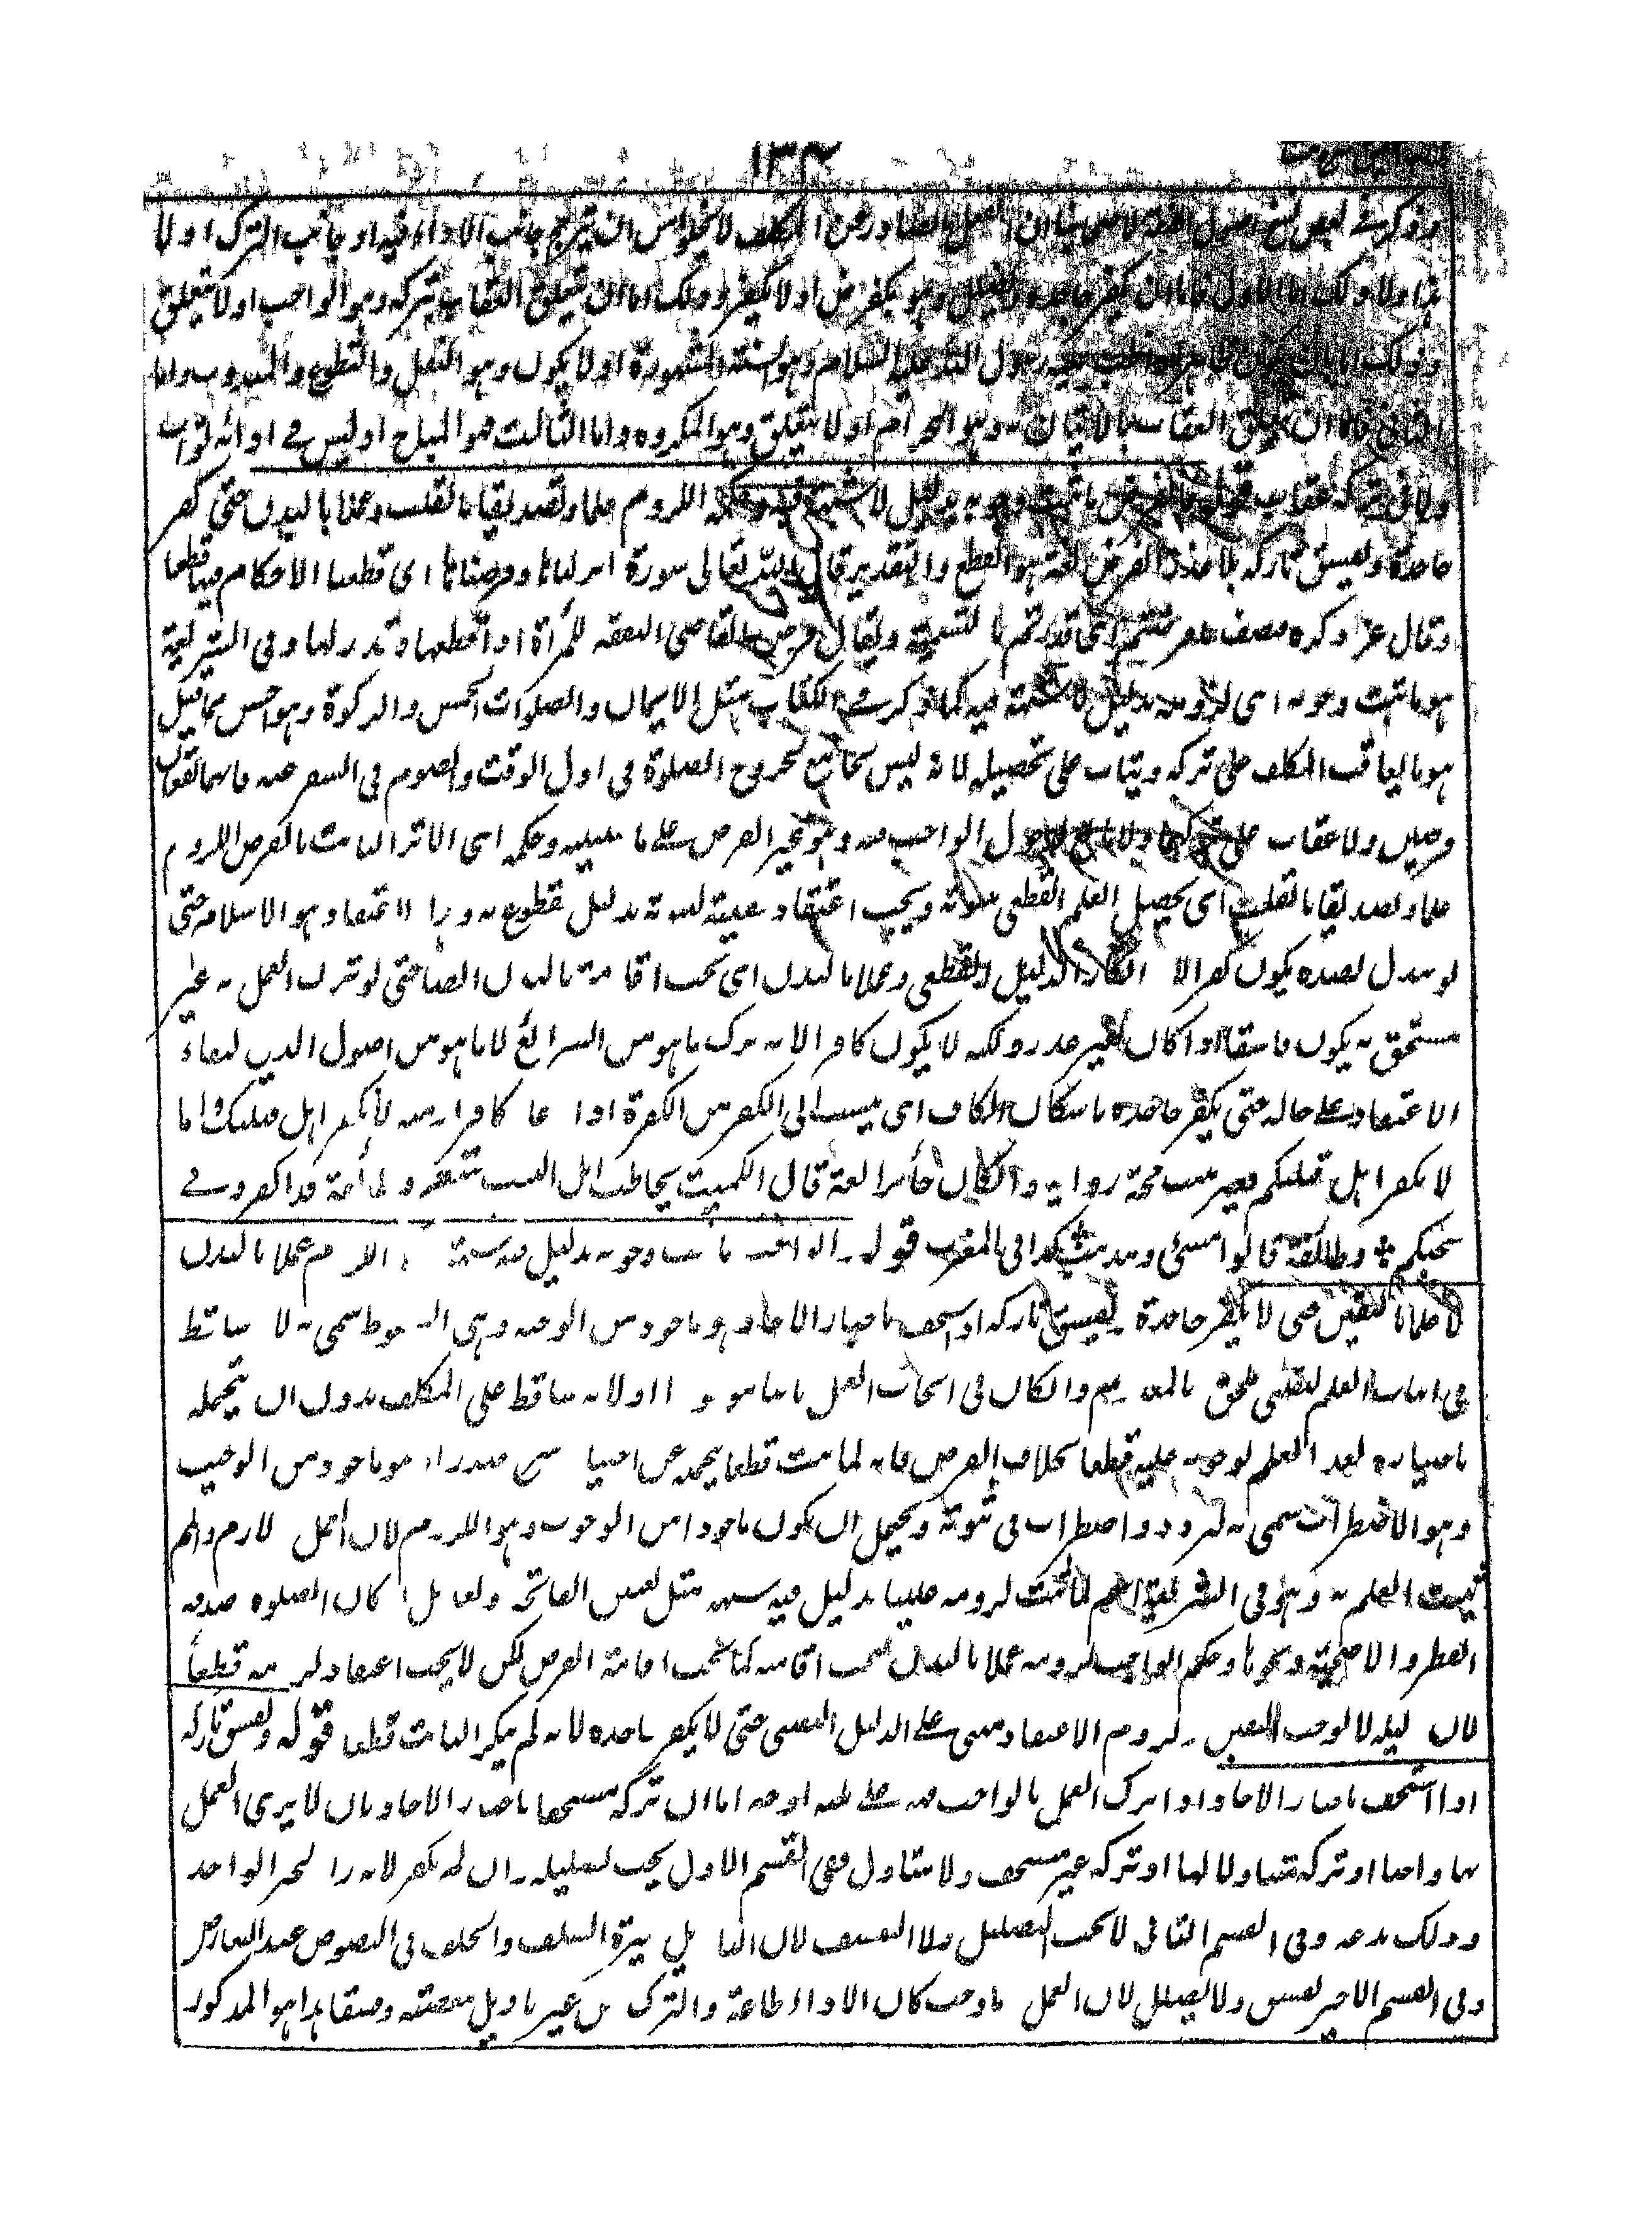 وذكر في بعض نسخ اصول الفقه ان الفعل الصادر عن المكلف لا يخلو من ان يترجح جانب الاداء فيه او جانب الترك او لا
ذا ولا ذلك اما الاول فاما ان يكفر جاحده ويضلل وهو الفرض او لا يكفر وذلك اما ان يتعلق العقاب بتركه وهو الواجب او لا يتعلق
وذلك اما ان يكون رسول الله عليه السلام وهو السنة المشهورة او لا يكون وهو النفل والتطوع والمندوب واما
الثاني فاما ان يتعلق العقاب بالاتيان به وهو الحرام او لا يتعلق وهو المكروه واما الثالث هو المباح او ليس في ادائه ثواب
ولا في تركه عقاب قوله فالفرض ما ثبت وجوبه بدليل لا شبهة فيه وحكمه اللزوم علما وتصديقا بالقلب وعملا بالبدن حتى يكفر
جاحده ويفسق تاركه بلا عذر الفرض لغة هو القطع والتقدير قال الله تعالى سورة انزلناها وفرضناها اى قطعنا الاحكام فيها قطعا
وقال عز ذكره فنصف ما فرضتم اى قدرتم بالتسمية ويقال فرض القاضى النفقة للمرأة اذا قطعها وقدر لها وفى الشريعة
هو ما ثبت وجوبه اى لزومه بدليل لا شبهة فيه كما ذكر فى الكتاب مثل الايمان والصلوات الخمس والزكوة وهو احسن مما قيل
هو ما يعاقب المكلف على تركه ويثاب على تحصيله لانه ليس بجامع لخروج الصلوة فى اول الوقت والصوم فى السفر عنه فانهما يقعان
فرضين ولا عقاب على تركهما ولا مانع لدخول الواجب فيه وهو غير الفرض على ما سنبينه وحكمه اى الاثر الثابت بالفرض اللزوم
علما وتصديقا بالقلب اى يحصل العلم القطعى بثبوته ويجب اعتقاد حقيته لثبوته بدليل مقطوع به وهذا الاعتقاد هو الاسلام حتى
لو تبدل بضده يكون كفرا لانكار الدليل القطعى وعملا بالبدن اى يجب اقامته بالبدن ايضا حتى لو ترك العمل به غير
مستخف به يكون فاسقا اذا كان بغير عذر ولكنه لا يكون كافرا لانه ترك ما هو من الشرائع لا ما هو من اصول الدين لبقاء
الاعتقاد على حاله حتى يكفر جاحده باسكان الكاف اى ينسب الى الكفر من اكفره اذا دعاه كافرا ومنه لا تكفر اهل قبلتك واما
لا تكفروا اهل قبلتكم فغير ثبت صحته رواية وان كان جائزا لغة قال الكميت يخاطب اهل البيت شعر وطائفة قد اكفرونى
بحبكم ؞ وطائفة قالوا مسئ ومذنب ؞ كذا فى المغرب قوله والواجب ما ثبت وجوبه بدليل فيه شبهة وحكمه اللزوم عملا بالبدن
لا علما باليقين حتى لا يكفر جاحده ويفسق تاركه اذا استخف باخبار الاحاد وهو ماخوذ من الوجبة وهى السقوط سمى به لانه ساقط
فى اثبات العلم اليقينى ملحق بالمعدوم وان كان فى ايجاب العمل ثابتا موجودا او لانه ساقط على المكلف بدون ان يتحمله
باختياره لعدم العلم بوجوبه عليه قطعا بخلاف الفرض فانه لما ثبت قطعا يتحمله عن اختيار وشرح صدر او هو ماخوذ من الوجيب
وهو الاضطراب سمى به لتردد واضطراب فى ثبوته ويحتمل ان يكون ماخوذا من الوجوب وهو اللزوم لان العمل به لازم وان لم
يثبت العلم به وهو فى الشريعة اسم لما ثبت لزومه علينا بدليل فيه شبهة مثل تعيين الفاتحة وتعديل اركان الصلوة وصدقة
الفطر والاضحية ونحوها وحكم الواجب لزومه عملا بالبدن فيجب اقامته كما تجب اقامة الفرض لكن لا يجب اعتقاد لزومه قطعا
لان دليله لا يوجب اليقين ولزوم الاعتقاد مبنى على الدليل اليقينى حتى لا يكفر جاحده لانه لم ينكر الثابت قطعا قوله ويفسق تاركه
اذا استخف باخبار الاحاد اذا ترك العمل بالواجب فهو على ثلثة اوجه اما ان تركه مستخفا باخبار الاحاد بان لا يرى العمل
بها واجبا او تركه متاولا لها او تركه غير مستخف ولا متاول ففى القسم الاول يجب تضليله وان لم يكفر لانه راد لخبر الواحد
وذلك بدعة وفى القسم الثانى لا يجب التضليل ولا التفسيق لان التاويل سيرة السلف والخلف فى النصوص عند التعارض
وفى القسم الاخير يفسق ولا يضلل لان العمل به لما وجب كان الاداء طاعة والترك من غير تاويل معصية وفسقا هذا هو المذكور